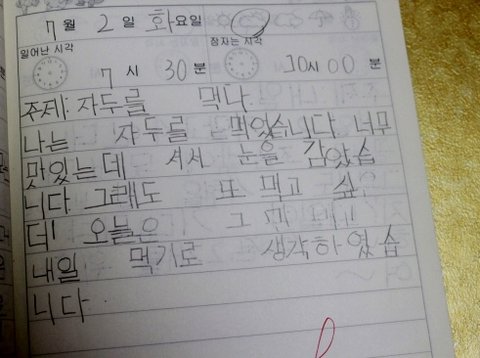 7월 2일 화요일
일어난 시각 잠자는 시각
7시 30분 10시 00분
주제: 자두를 먹다.
나는 자두를 먹었습니다. 너무
맛있는데 셔서 눈을 감았습
니다. 그래도 또 먹고 싶
데! 오늘은 그만 먹고
내일 먹기로 생각하였습
니다.